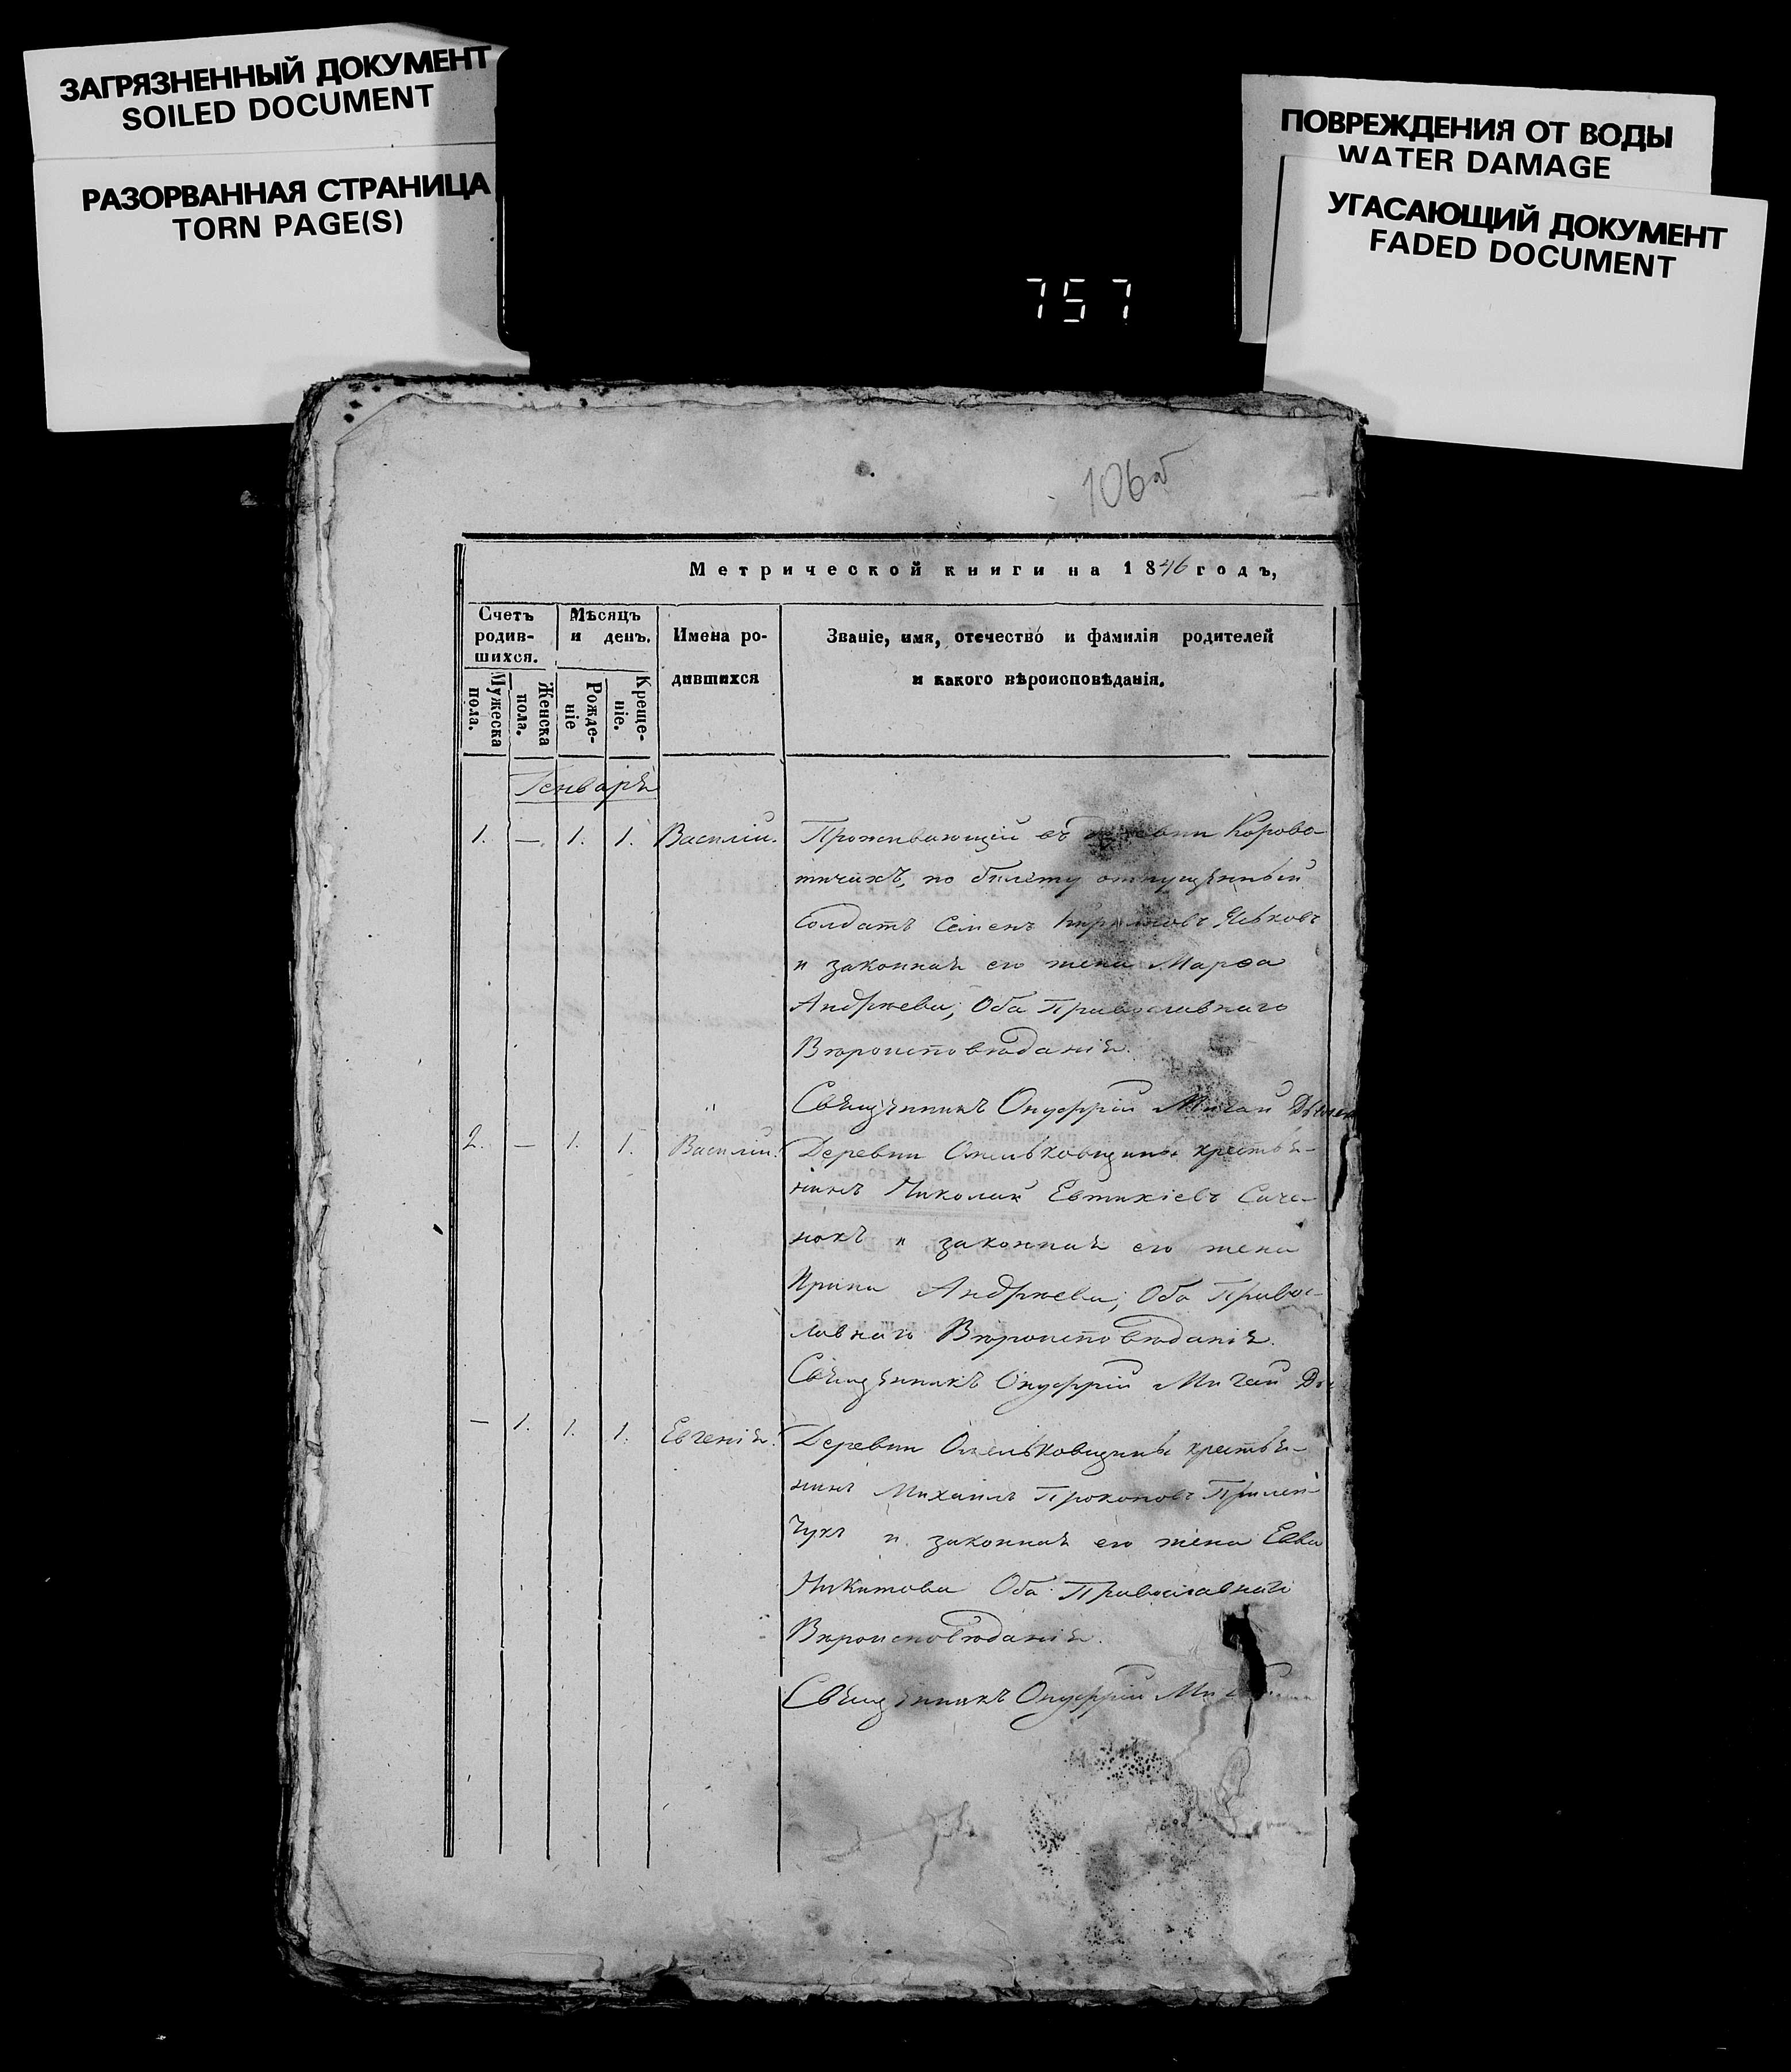 ЗАГРЯЗНЕННЫЙ ДОКУМЕНТ
SOILED DOCUMENT
РАЗОРВАННАЯ СТРАНИЦА
TORN PAGE(S)
ПОВРЕЖДЕНИЯ ОТ ВОДЫ
WATER DAMAGE
УГАСАЮЩИЙ ДОКУМЕНТ
FADED DOCUMENT
757
106
Метрической книги на 1846 годъ,
Счетъ родив-шихся.
Мужеска пола.
Женска пола.
Мѣсяцъ и день.
Рожде-ніе
Креще-ніе.
Имена ро-дившихся
Званіе, имя, отечество и фамилія родителей
и какого вѣроисповѣданія.
Генваря
1. — 1. 1. Василій. Проживающій въ деревни Корово-
тичахъ, по билету отпущенный
Солдатъ Семенъ Яцковъ
и законная его жена Марѳа
Андрѣева, Оба Православнаго
Вѣроисповѣданія.
Священникъ Онуфрій Мигай
2. — 1. 1. Василій. Деревни Омельковщины крестья-
нинъ Николай Евтихіевъ Саче-
нокъ и законная его жена
Ирина Андрѣева, Оба Правос-
лавнаго Вѣроисповѣданія.
Священникъ Онуфрій Мигай
— 1. 1. 1. Евгенія. Деревни Омельковщины крестья-
нинъ Михаилъ Прокоповъ Прилеп-
чукъ и законная его жена Евва
Никитова Оба Православнаго
Вѣроисповѣданія.
Священникъ Онуфрій